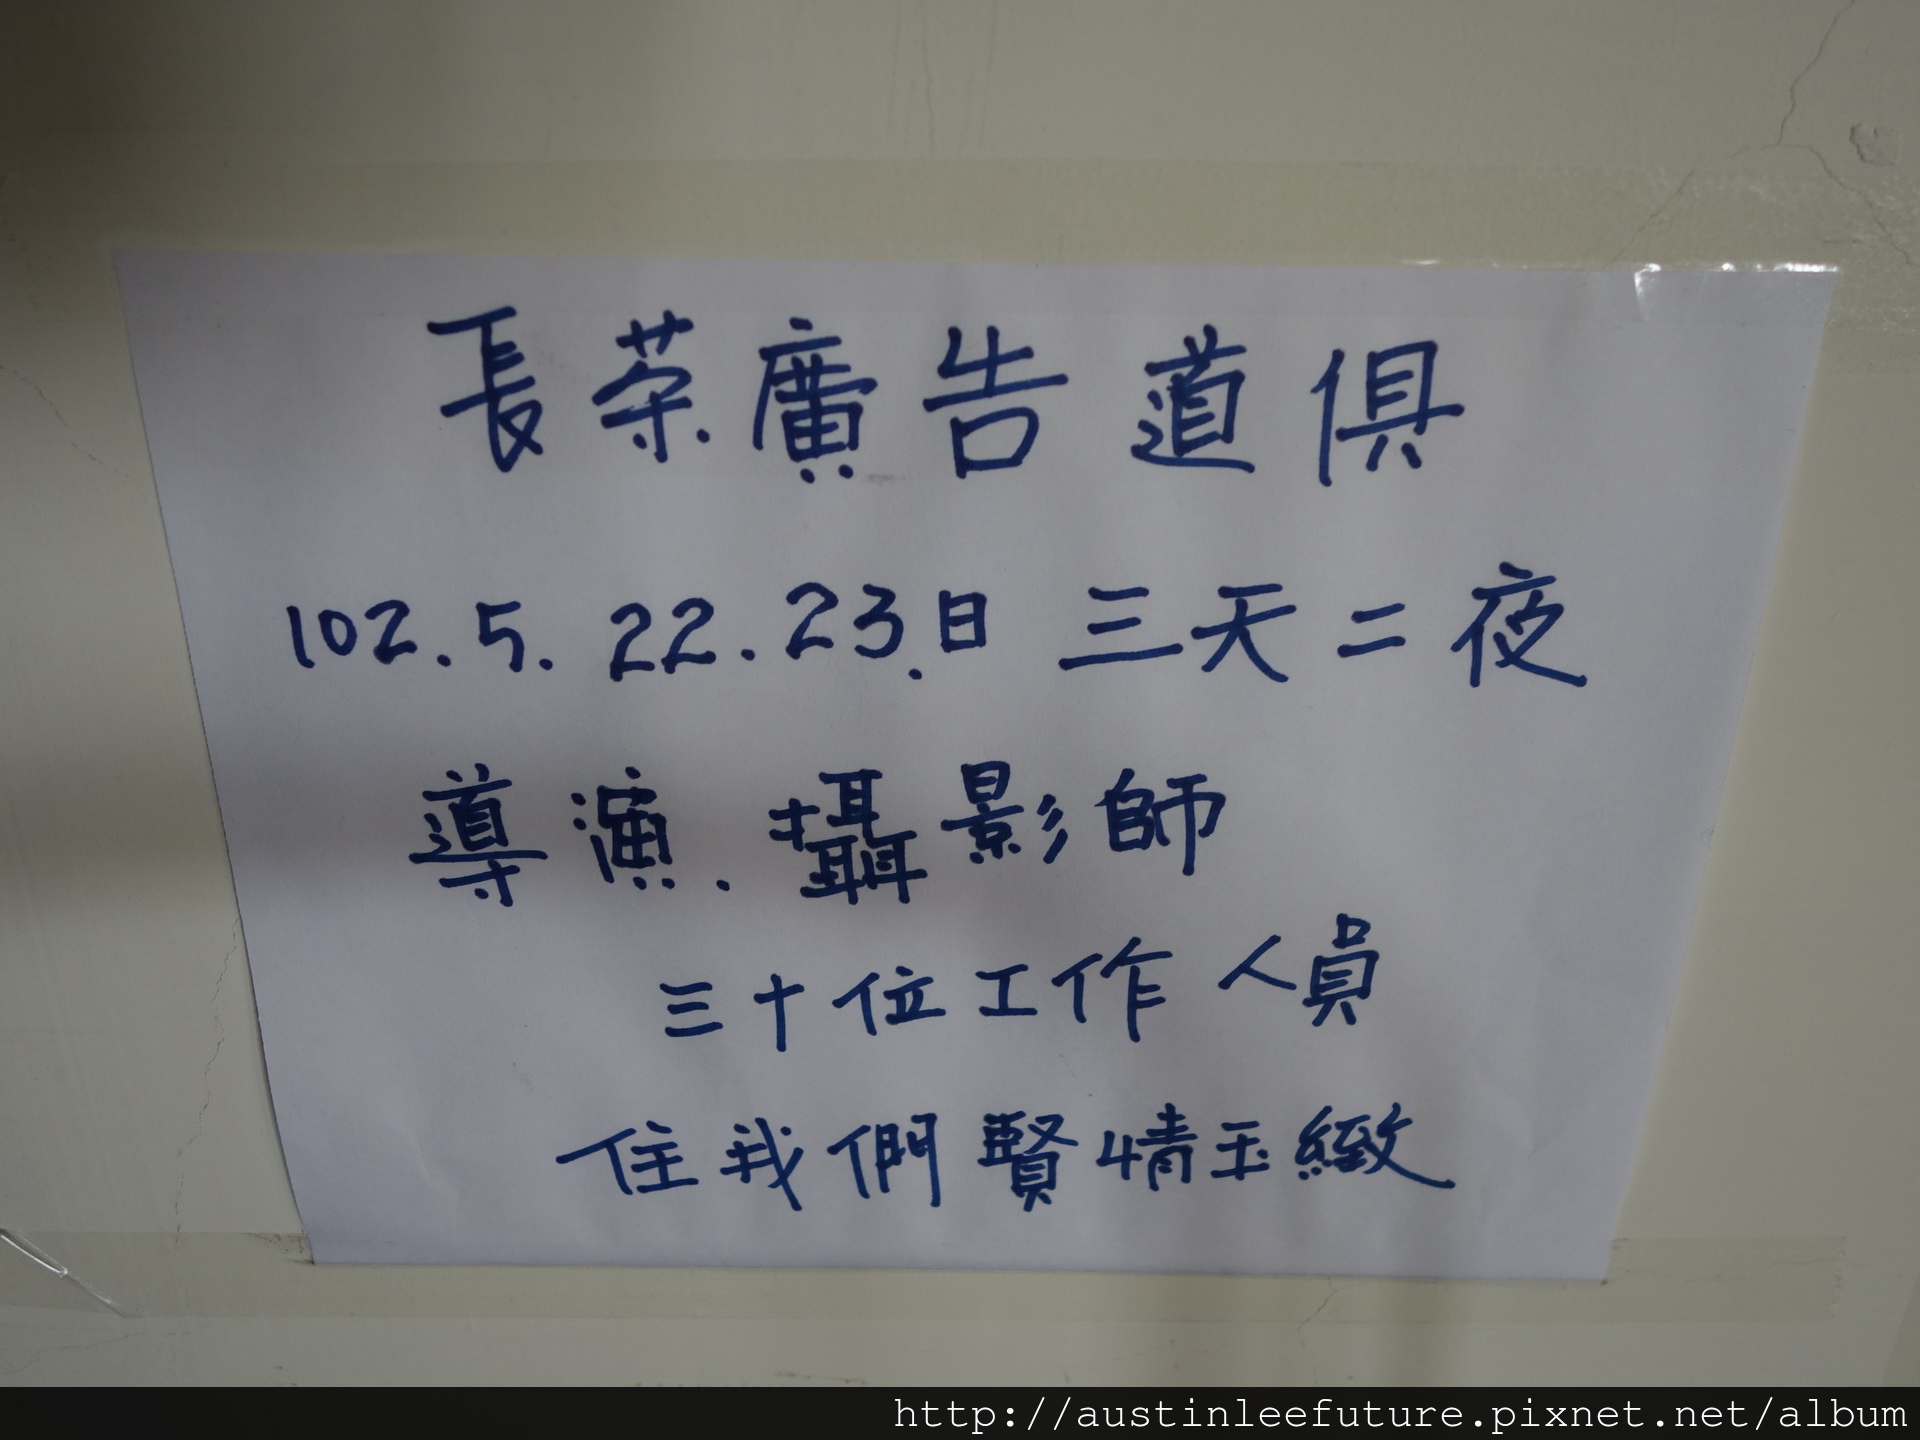 長荣廣告道俱
102.5.22.23.日 三天二夜
導演.攝影師
三十位工作人員
住我們賢情玉緻
http://austinleefuture.pixnet.net/album